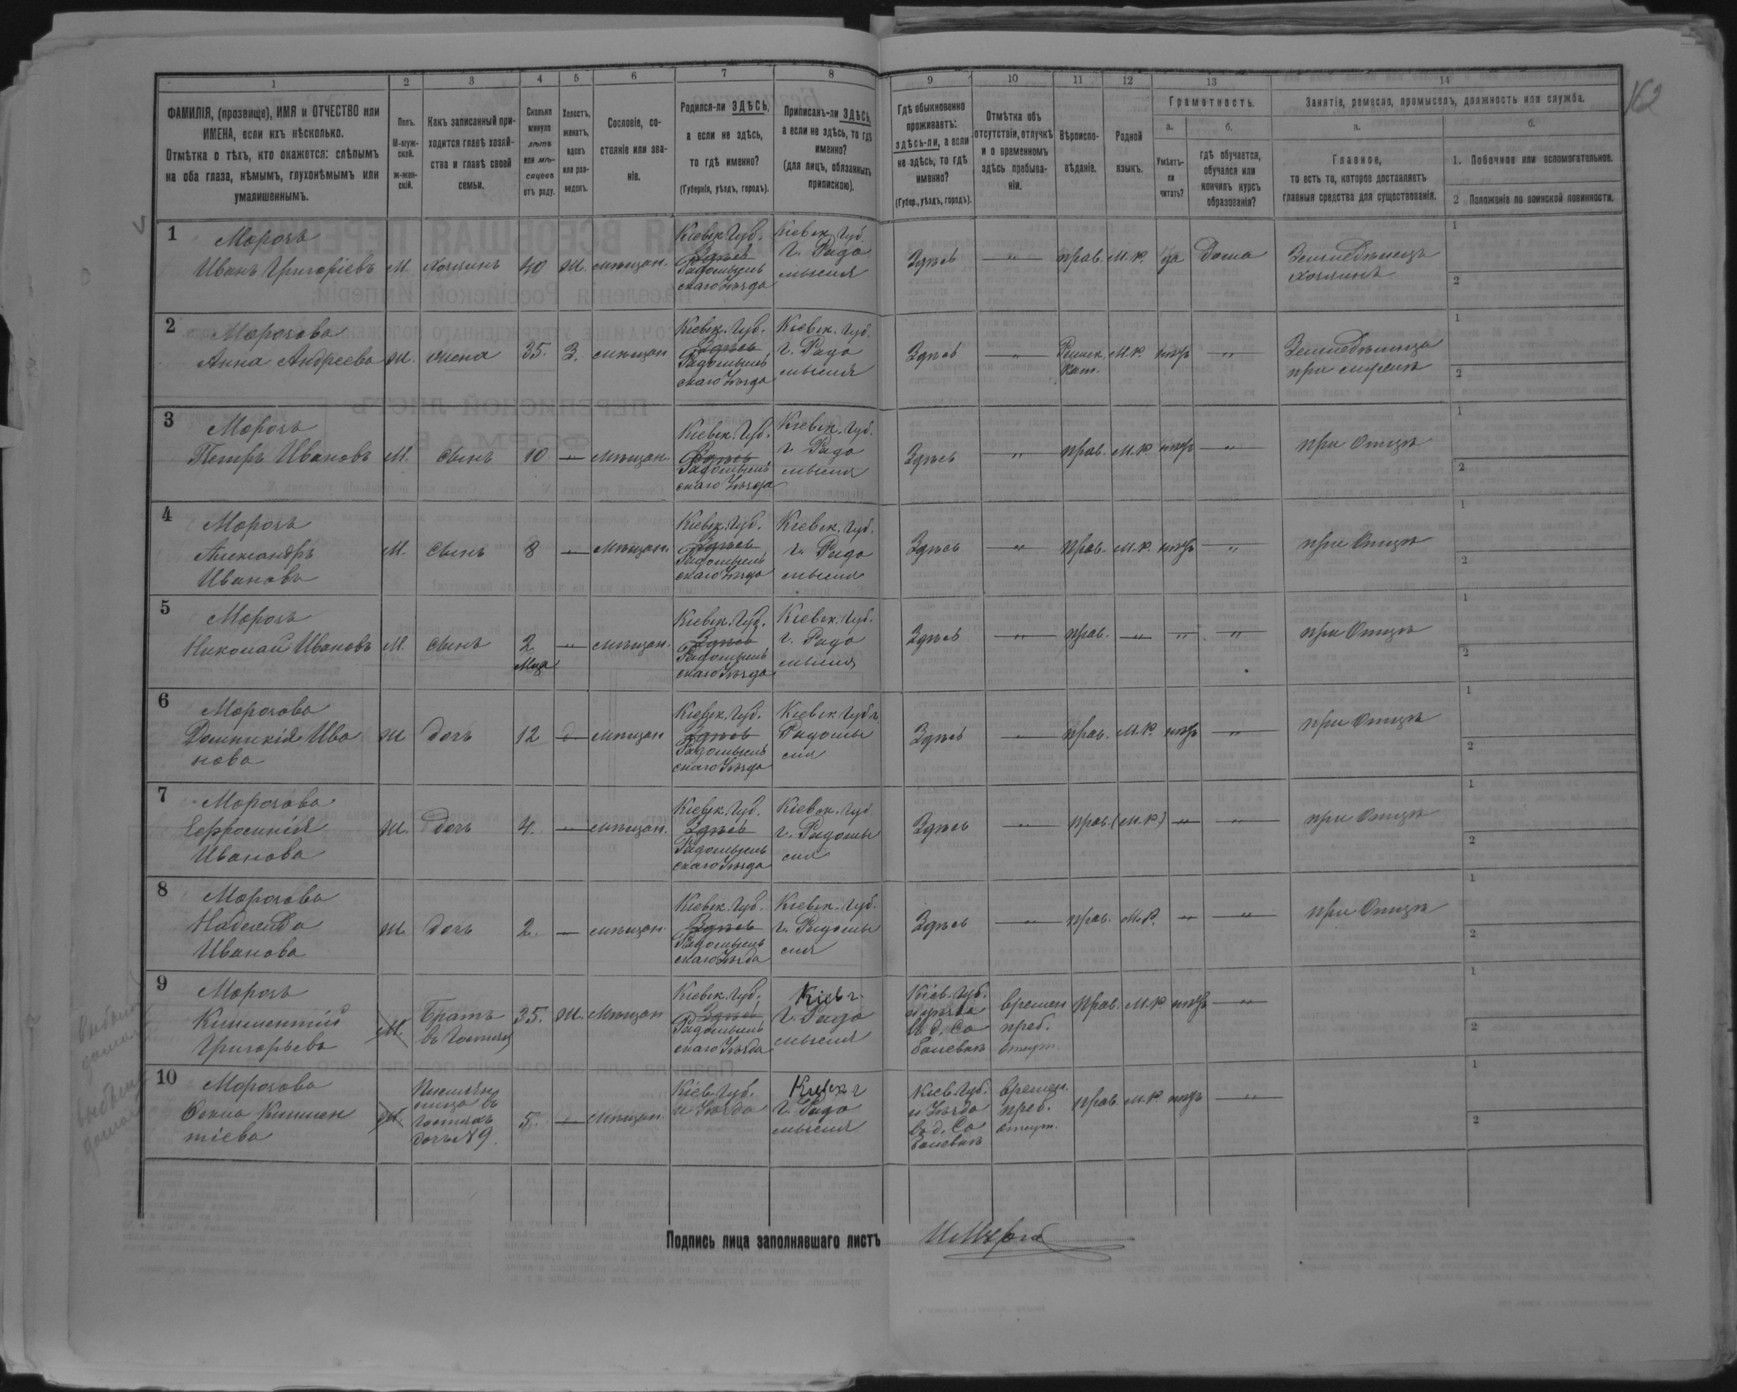 162
1 2 3 4 5 6 7 8 9 10 11 12 13 14
ФАМИЛІЯ, (прозвище), ИМЯ и ОТЧЕСТВО или
ИМЕНА, если ихъ нѣсколько.
Отмѣтка о тѣхъ, кто окажется: слѣпымъ
на оба глаза, нѣмымъ, глухонѣмымъ или
умалишеннымъ.
Полъ.
М-муж-
ской.
Ж-жен-
скій.
Какъ записанный при-
ходится главѣ хозяй-
ства и главѣ своей
семьи.
Сколько
минуло
лѣтъ
или мѣ-
сяцевъ
отъ роду.
Холостъ,
женатъ,
вдовъ
или раз-
веденъ.
Сословіе, со-
стояніе или зва-
ніе.
Родился-ли ЗДѢСЬ,
а если не здѣсь,
то гдѣ именно?
(Губернія, уѣздъ, городъ).
Приписанъ-ли ЗДѢСЬ,
а если не здѣсь, то гдѣ
именно?
(для лицъ, обязанныхъ
припискою).
Гдѣ обыкновенно
проживаетъ:
здѣсь-ли, а если
не здѣсь, то гдѣ
именно?
(Губер., уѣздъ, городъ).
Отмѣтка объ
отсутствіи, отлучкѣ
и о временномъ
здѣсь пребыва-
ніи.
Вѣроиспо-
вѣданіе.
Родной
языкъ.
Грамотность.
а.
Умѣетъ-
ли
читать?
б.
гдѣ обучается,
обучался или
кончилъ курсъ
образованія?
Занятіе, ремесло, промыселъ, должность или служба.
а.
Главное,
то есть то, которое доставляетъ
главныя средства для существованія.
б.
1. Побочное или вспомогательное.
2 Положеніе по воинской повинности.
1 Морозъ
Иванъ Григоріевъ М. хозяинъ 40 Ж. мѣщан.
Кіевск. Губ.
Здѣсь
Радомысль
скаго Уѣзда
Кіевск. Губ.
г. Радо
мысля
Здѣсь — " — прав. М.Р. да Дома
Земледѣлецъ
хозяинъ
1
2
2 Морозова
Анна Андреева Ж. жена 35. З. мѣщан
Кіевск. Губ.
Здѣсь
Радомысль
скаго Уѣзда
Кіевск. Губ.
г. Радо
мысля
Здѣсь — " — Римск. Кат. М.Р. нѣтъ — " —
Земледѣлица
при мужѣ
1
2
3 Морозъ
Петръ Ивановъ М. сынъ 10 — " — мѣщан.
Кіевск. Губ.
Здѣсь
Радомысль
скаго Уѣзда
Кіевск. Губ.
г. Радо
мысля
Здѣсь — " — прав. М.Р. нѣтъ — " — при Отцѣ
1
2
4 Морозъ
Александръ
Ивановъ
М. сынъ 8 — " — мѣщан.
Кіевск. Губ.
Здѣсь
Радомысль
скаго Уѣзда
Кіевск. Губ.
г. Радо
мысля
Здѣсь — " — прав. М.Р. нѣтъ — " — при Отцѣ
1
2
5 Морозъ
Николай Ивановъ М. сынъ 2 — " — мѣщан.
Кіевск. Губ.
Здѣсь
Радомысль
скаго Уѣзда
Кіевск. Губ.
г. Радо
мысля
Здѣсь — " — прав. — " — " — " — при Отцѣ
1
2
6 Морозова
Ива
нова
Ж дочь 12 мѣщан
Кіевск. Губ.
Здѣсь
Радомысль
скаго Уѣзда
Кіевск. Губ. г.
Радомы
сля
Здѣсь — " — прав. М.Р. нѣтъ — " — при Отцѣ
1
2
7 Морозова
Ефросинія
Иванова
Ж. дочь 4. — " — мѣщан.
Кіевск. Губ.
Здѣсь
Радомысль
скаго Уѣзда
Кіевск. Губ
г. Радомы
сля
Здѣсь — " — прав. (М.Р.) — " — " — при Отцѣ
1
2
8 Морозова
Надежда
Иванова
Ж. дочь 2. — мѣщан.
Кіевск. Губ.
Здѣсь
Радомысль
скаго Уѣзда
Кіевск. Губ.
г. Радомы
сля
Здѣсь — " — прав. М.Р. — " — " — при Отцѣ
1
2
9 Морозъ
Климентій
Григорьевъ
М. Братъ
35. Ж. мѣщан
Кіевск. Губ.
Здѣсь
Радомысль
скаго Уѣзда
Кіев г.
г. Радо
мысля
Кіев. Губ.
и уѣзда
въ д.
времен
преб.
прав. М.Р. нѣтъ — " —
1
2
10 Морозова
Климен
тіева
дочь №9.
5. — мѣщан
Кіев. Губ.
и Уѣзда
г. Радо
мысля
Кіев. Губ.
и Уѣзда
въ д.
времен.
преб.
прав. М.Р. нѣтъ — " —
1
2
Подпись лица заполнявшаго листъ